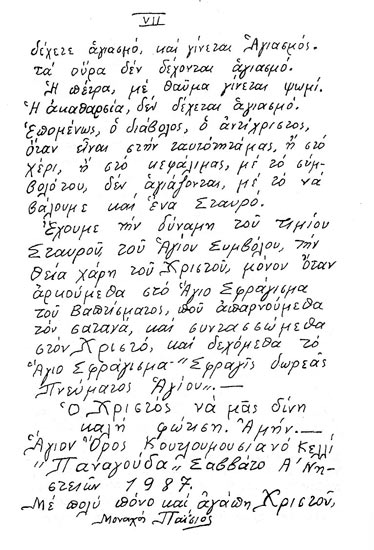 VII
δέχετε ἁγιασμό, καί γίνεται Ἁγιασμός.
τά οὖρα δέν δέχονται ἁγιασμό.
Ἡ πέτρα, μέ θαῦμα γίνεται ψωμί.
Ἡ ἀκαθαρσία, δέν δέχεται ἁγιασμό.
Ἑπομένως, ὁ διάβολος, ὁ ἀντίχριστος,
ὅταν εἶναι στήν ταυτότητάμας, ἤ στό
χέρι, ἤ στό κεφάλιμας, μέ τό σύμ-
βολότου, δέν ἁγιάζονται, μέ τό νά
βάλουμε καί ἕνα Σταυρό.
Ἔχουμε τήν δύναμη τοῦ τιμίου
Σταυροῦ, τοῦ Ἁγίου Συμβόλου, τήν
θεία χάρη τοῦ Χριστοῦ, μόνον ὅταν
ἀρκούμεθα στό Ἅγιο Σφράγισμα
τοῦ Βαπτίσματος, πού ἀπαρνούμεθα
τόν σατανᾶ, καί συντασσώμεθα
στόν Χριστό, καί δεχόμεθα τό
Ἅγιο Σφράγισμα- "Σφραγίς δωρεᾶς
Πνεύματος Ἁγίου".—
Ὁ Χριστός νά μᾶς δίνη
καλή φώτιση. Ἀμήν.—
Ἅγιον Ὄρος Κουτλουμουσιανό Κελλί
"Παναγούδα" Σαββάτο Α΄ Νη-
στειῶν 1987.
Μέ πολύ πόνο καί ἀγάπη Χριστοῦ,
Μοναχό Παΐσιος